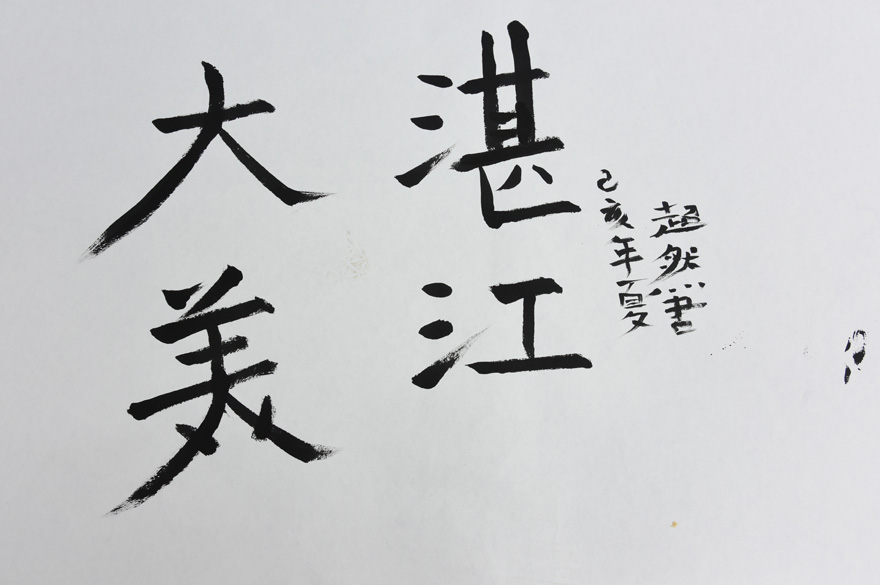 大美
湛江
己亥年夏
超然書